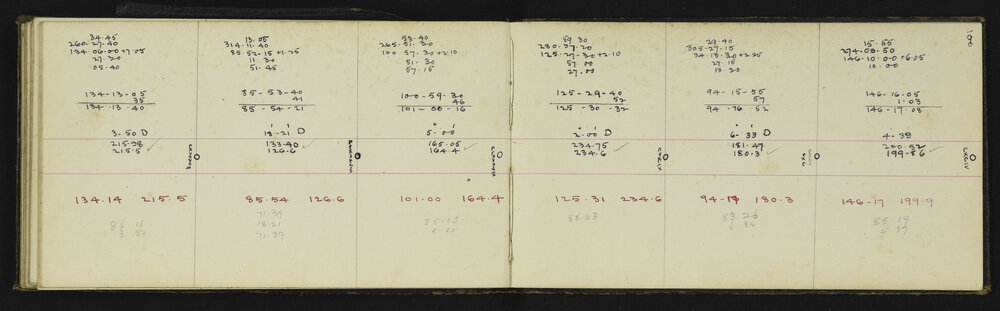 34.45
260.27.40
134.06.00+7.05
27.20
05.40
134-13-05
35
134.13.40
3-50 D
215.98
215.5
134.14 215.5
86.11
3 51
13.05
314.11.40
85.52.15+1.25
11 30
51.45
85-53-40
41
85-54-21
18-21 D
133.40
126.6
85.54 126.6
71.39
18.21
71.39
53.40
265.51.30
100 57.30+2.10
51.30
57.15
100-59-30
46
101-00-16
5-00
165.05
164.4
101.00 164.4
85.00
5.00
59 30
280.57.20
125.27.30+2.10
57.00
27.00
125-29-40
52
125-30-32
2-00 D
234.75
234.6
CXXIX
125.31 234.6
88.03
29.40
305.27.15
94.13.30+2.25
27.15
13.20
94-15-55
57
94-16 52
6-33 D
181.47
180.3
94-17 180.3
83.26
6 32
100
15.55
274.09.50
146.10.00+6.05
10.00
146-16.05
1.03
146-17.08
4-39
200.52
199.86
146-17 199.9
85-19
4 39